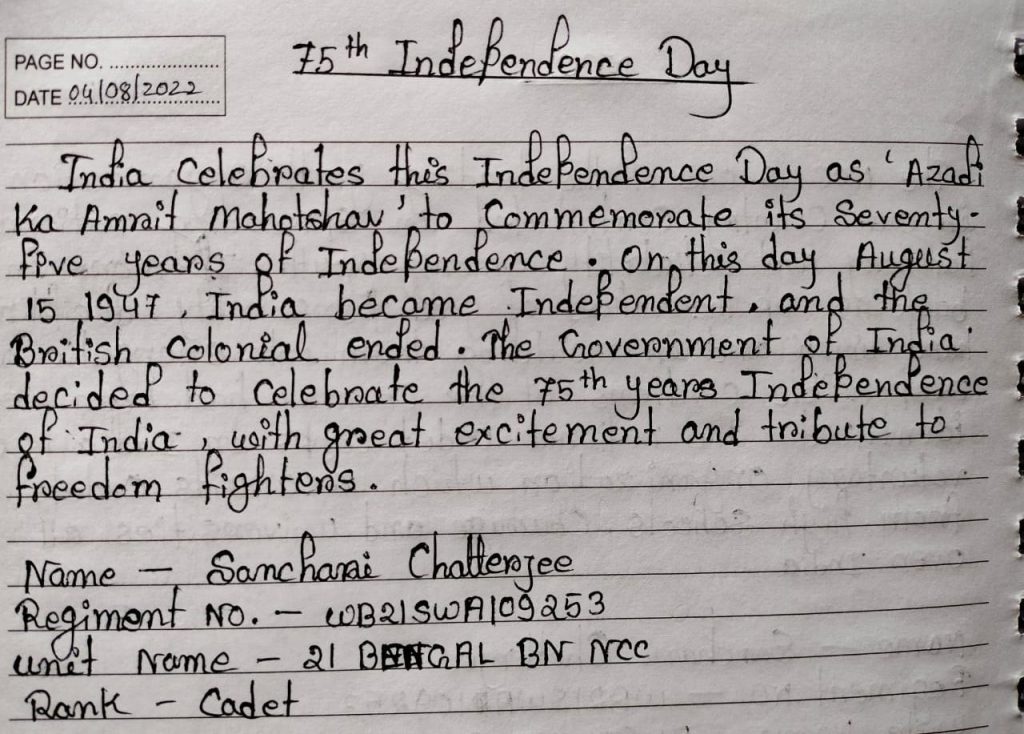 75th Independence Day
PAGE NO.
DATE 04/08/2022
India Celebrates this Independence Day as 'Azadi
Ka Amrit Mahotshav' to Commemorate its Seventy-
five years of Independence. On this day, August
15 1947, India became Independent, and the
British Colonial ended. The Government of India
decided to celebrate the 75th years Independence
of India, with great excitement and tribute to
freedom fighters.
Name - Sancharai Chatterjee
Regiment No. - WB21SWA109253
unit Name - 21 BENGAL BN NCC
Rank - Cadet